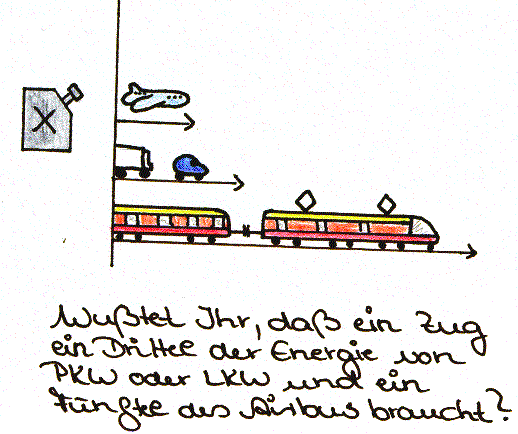 X
Wußtet Ihr, daß ein Zug
ein Drittel der Energie von
PKW oder LKW und ein
Fünftel des Airbus braucht?